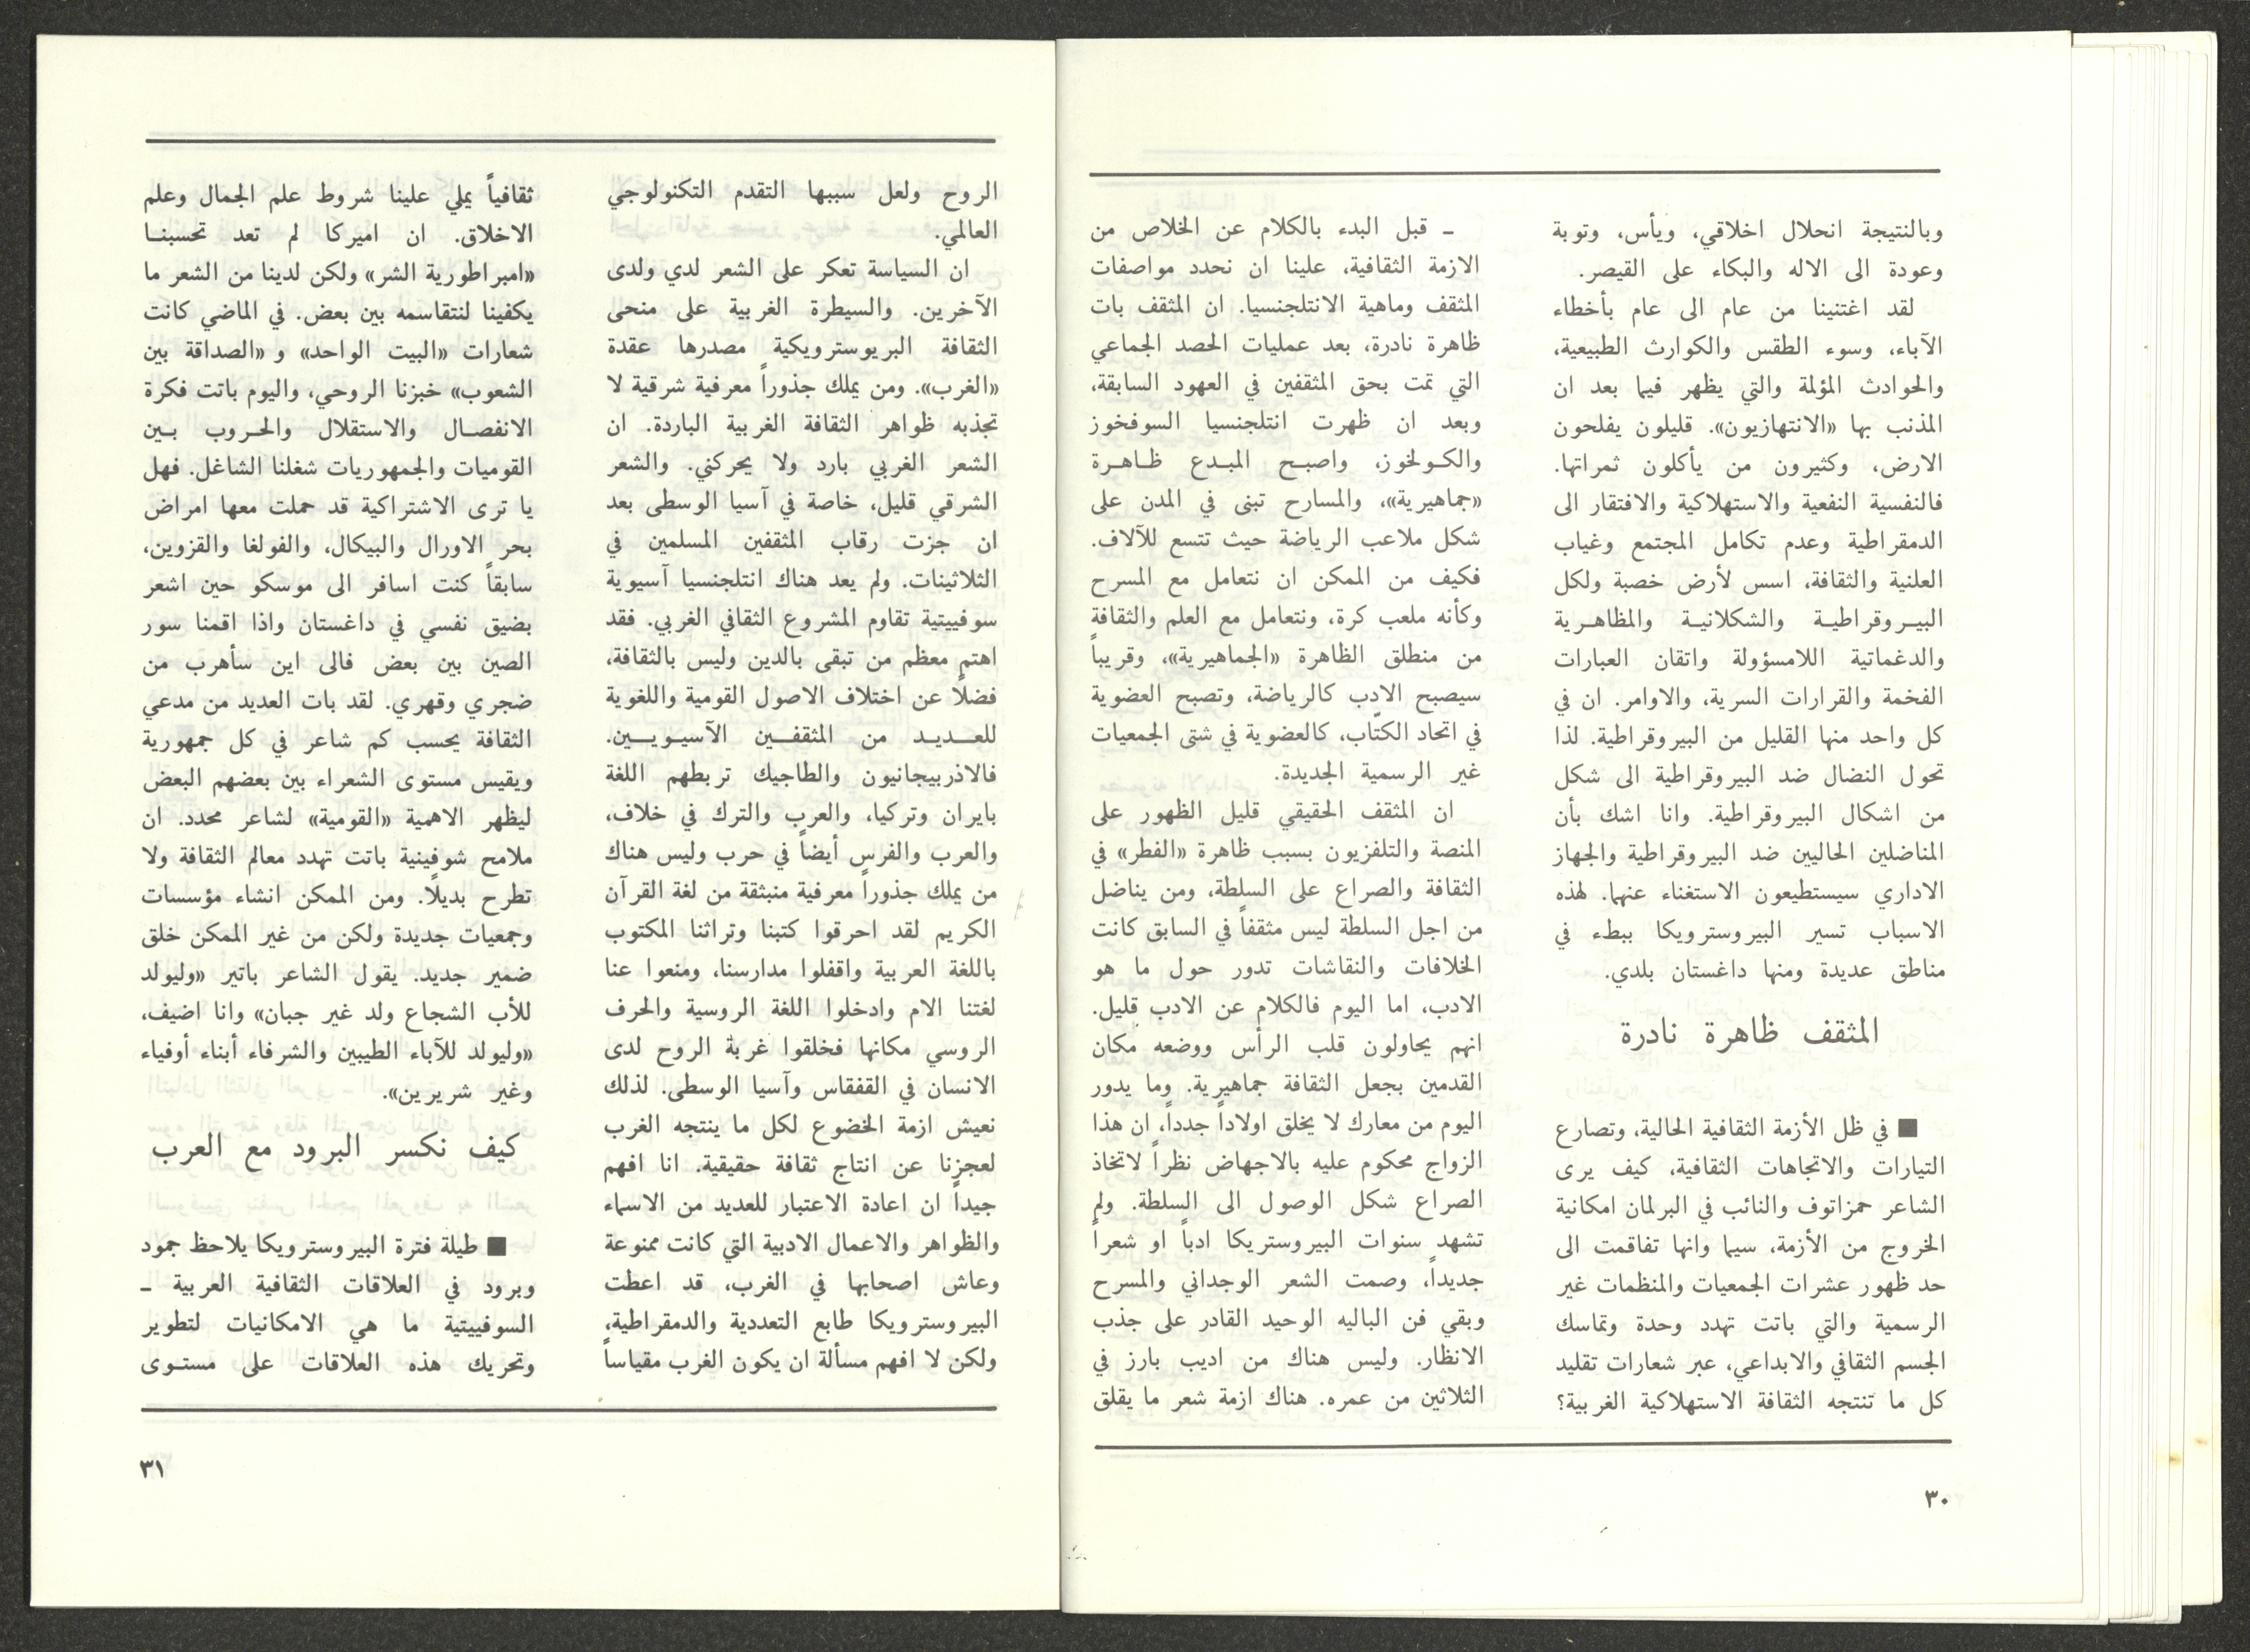 وبالنتيجة انحلال اخلاقي، ويأس، وتوبة
وعودة الى الاله والبكاء على القيصر.
لقد اغتنينا من عام الى عام بأخطاء
الآباء، وسوء الطقس والكوارث الطبيعية،
والحوادث المؤلمة والتي يظهر فيما بعد ان
المذنب بها «الانتهازيون». قليلون يفلحون
الارض، وكثيرون من يأكلون ثمراتها.
فالنفسية النفعية والاستهلاكية والافتقار الى
الدمقراطية وعدم تكامل المجتمع وغياب
العلنية والثقافة، اسس لأرض خصبة ولكل
البيروقراطية والشكلانية والمظاهرية
والدغماتية اللامسؤولة واتقان العبارات
الفخمة والقرارات السرية، والاوامر. ان في
كل واحد منها القليل من البيروقراطية. لذا
تحول النضال ضد البيروقراطية الى شكل
من اشكال البيروقراطية. وانا اشك بأن
المناضلين الحاليين ضد البيروقراطية والجهاز
الاداري سيستطيعون الاستغناء عنهما. لهذه
الاسباب تسير البيروسترويكا ببطء في
مناطق عديدة ومنها داغستان بلدي.
المثقف ظاهرة نادرة
■ في ظل الأزمة الثقافية الحالية، وتصارع
التيارات والاتجاهات الثقافية، كيف يرى
الشاعر حمزاتوف والنائب في البرلمان امكانية
الخروج من الأزمة، سيما وانها تفاقمت الى
حد ظهور عشرات الجمعيات والمنظمات غير
الرسمية والتي باتت تهدد وحدة وتماسك
الجسم الثقافي والابداعي، عبر شعارات تقليد
كل ما تنتجه الثقافة الاستهلاكية الغربية؟
ـ قبل البدء بالكلام عن الخلاص من
الازمة الثقافية، علينا ان نحدد مواصفات
المثقف وماهية الانتلجنسيا. ان المثقف بات
ظاهرة نادرة، بعد عمليات الحصد الجماعي
التي تمت بحق المثقفين في العهود السابقة،
وبعد ان ظهرت انتلجنسيا السوفخوز
والكولخوز، واصبح المبدع ظاهرة
«جماهيرية»، والمسارح تبنى في المدن على
شكل ملاعب الرياضة حيث تتسع للآلاف.
فكيف من الممكن ان نتعامل مع المسرح
وكأنه ملعب كرة، ونتعامل مع العلم والثقافة
من منطلق الظاهرة «الجماهيرية»، وقريباً
سيصبح الادب كالرياضة، وتصبح العضوية
في اتحاد الكتّاب، كالعضوية في شتى الجمعيات
غير الرسمية الجديدة.
ان المثقف الحقيقي قليل الظهور على
المنصة والتلفزيون بسبب ظاهرة «الفطر» في
الثقافة والصراع على السلطة، ومن يناضل
من اجل السلطة ليس مثقفاً في السابق كانت
الخلافات والنقاشات تدور حول ما هو
الادب، اما اليوم فالكلام عن الادب قليل.
انهم يحاولون قلب الرأس ووضعه مكان
القدمين بجعل الثقافة جماهيرية. وما يدور
اليوم من معارك لا يخلق اولاداً جدداً، ان هذا
الزواج محكوم عليه بالاجهاض نظراً لاتخاذ
الصراع شكل الوصول الى السلطة. ولم
تشهد سنوات البيروستريكا ادباً او شعراً
جديداً، وصمت الشعر الوجداني والمسرح
وبقي فن الباليه الوحيد القادر على جذب
الانظار. وليس هناك من اديب بارز في
الثلاثين من عمره. هناك ازمة شعر ما يقلق
٣٠
الروح ولعل سببها التقدم التكنولوجي
العالمي.
ان السياسة تعكر على الشعر لدي ولدى
الآخرين. والسيطرة الغربية على منحى
الثقافة البريوسترويكية مصدرها عقدة
«الغرب». ومن يملك جذوراً معرفية شرقية لا
تجذبه ظواهر الثقافة الغربية الباردة. ان
الشعر الغربي بارد ولا يحركني. والشعر
الشرقي قليل، خاصة في آسيا الوسطى بعد
ان جزت رقاب المثقفين المسلمين في
الثلاثينات. ولم يعد هناك انتلجنسيا آسيوية
سوفييتية تقاوم المشروع الثقافي الغربي. فقد
اهتم معظم من تبقى بالدين وليس بالثقافة،
فضلاً عن اختلاف الاصول القومية واللغوية
للعديد من المثقفين الآسيويين.
فالاذربيجانيون والطاجيك تربطهم اللغة
بايران وتركيا، والعرب والترك في خلاف،
والعرب والفرس أيضاً في حرب وليس هناك
من يملك جذوراً معرفية منبثقة من لغة القرآن
الكريم لقد احرقوا كتبنا وتراثنا المكتوب
باللغة العربية واقفلوا مدارسنا، ومنعوا عنا
لغتنا الام وادخلوا اللغة الروسية والحرف
الروسي مكانها فخلقوا غربة الروح لدى
الانسان في القفقاس وآسيا الوسطى. لذلك
نعيش ازمة الخضوع لكل ما ينتجه الغرب
لعجزنا عن انتاج ثقافة حقيقية. انا افهم
جيداً ان اعادة الاعتبار للعديد من الاسماء
والظواهر والاعمال الادبية التي كانت ممنوعة
وعاش اصحابها في الغرب، قد اعطت
البيروسترويكا طابع التعددية والدمقراطية،
ولكن لا افهم مسألة ان يكون الغرب مقياساً
ثقافياً يملي علينا شروط علم الجمال وعلم
الاخلاق. ان اميركا لم تعد تحسبنا
«امبراطورية الشر» ولكن لدينا من الشعر ما
يكفينا لنتقاسمه بين بعض. في الماضي كانت
شعارات «البيت الواحد» و «الصداقة بين
الشعوب» خبزنا الروحي، واليوم باتت فكرة
الانفصال والاستقلال والحروب بين
القوميات والجمهوريات شغلنا الشاغل. فهل
يا ترى الاشتراكية قد حملت معها امراض
بحر الاورال والبيكال، والفولغا والقزوين،
سابقاً كنت اسافر الى موسكو حين اشعر
بضيق نفسي في داغستان واذا اقمنا سور
الصين بين بعض فالى اين سأهرب من
ضجري وقهري. لقد بات العديد من مدعي
الثقافة يحسب كم شاعر في كل جمهورية
ويقيس مستوى الشعراء بين بعضهم البعض
ليظهر الاهمية «القومية» لشاعر محدد. ان
ملامح شوفينية باتت تهدد معالم الثقافة ولا
تطرح بديلاً. ومن الممكن انشاء مؤسسات
وجمعيات جديدة ولكن من غير الممكن خلق
ضمير جديد. يقول الشاعر باتير «وليولد
للأب الشجاع ولد غير جبان» وانا اضيف،
«وليولد للآباء الطيبين والشرفاء أبناء أوفياء
وغير شريرين».
كيف نكسر البرود مع العرب
■ طيلة فترة البيروسترويكا يلاحظ جمود
وبرود في العلاقات الثقافية العربية ـ
السوفييتية ما هي الامكانيات لتطوير
وتحريك هذه العلاقات على مستوى
٣١